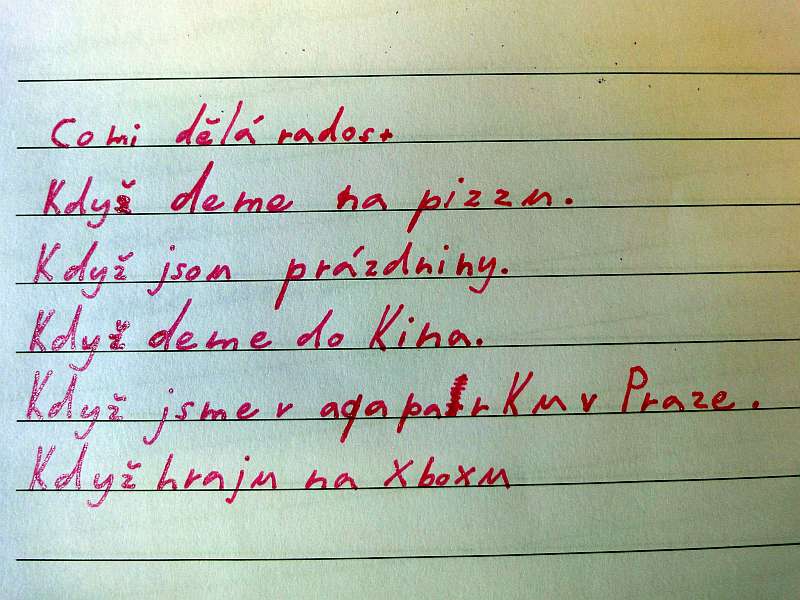 Co mi dělá radost
Když deme na pizzu.
Když jsou prázdniny.
Když deme do Kina.
Když jsme v aqaparKu v Praze.
Když hraju na Xboxu